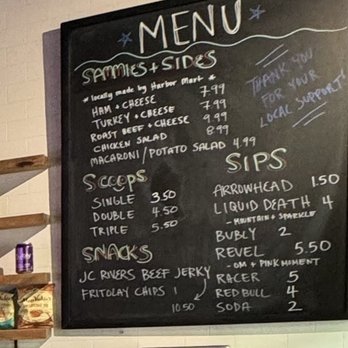 MENU
SAMMIES + SIDES
* locally made by Harbor Mart *
HAM + CHEESE 7.99
TURKEY + CHEESE 7.99
ROAST BEEF + CHEESE 9.99
CHICKEN SALAD 8.99
MACARONI/POTATO SALAD 4.99
THANK YOU
FOR YOUR
LOCAL SUPPORT
SCOOPS
SINGLE 3.50
DOUBLE 4.50
TRIPLE 5.50
SNACKS
JC RIVERS BEEF JERKY
FRITOLAY CHIPS 1
10.50
SIPS
ARROWHEAD 1.50
LIQUID DEATH 4
- MOUNTAIN + SPARKLE
BUBLY 2
REVEL 5.50
- OM + PINK MOMENT
RACER 5
RED BULL 4
SODA 2